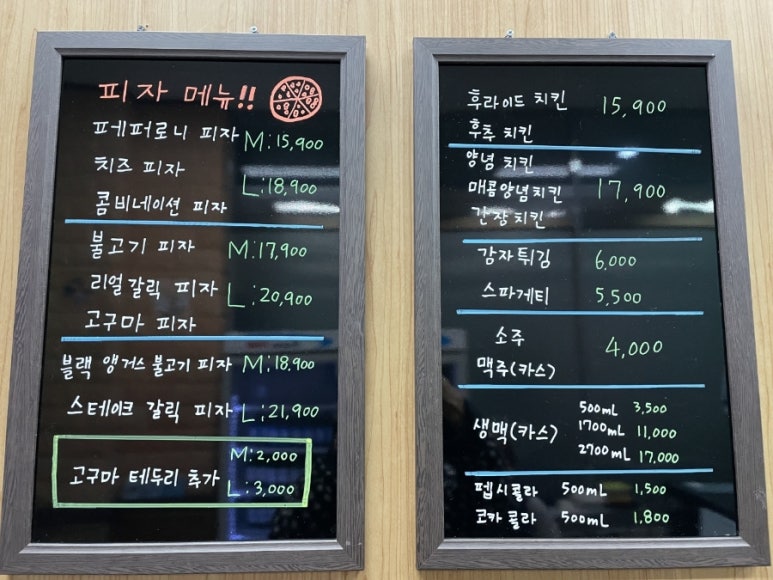 피자 메뉴!!
페퍼로니 피자 M:15,900
치즈 피자
L:18,900
콤비네이션 피자
불고기 피자 M:17,900
리얼갈릭 피자 L:20,900
고구마 피자
블랙 앵거스 불고기 피자 M:18.900
스테이크 갈릭 피자 L:21,900
M:2,000
고구마 테두리 추가
L:3,000
후라이드 치킨 15,900
후추 치킨
양념 치킨
매콤양념치킨 17,900
간장치킨
감자튀김 6.000
스파게티 5,500
소주
4,000
맥주(카스)
500mL 3,500
생맥(카스) 1700mL 11,000
2700mL 17.000
펩시콜라 500mL 1,500
코카콜라 500mL 1.800